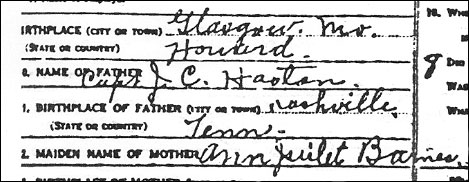 BIRTHPLACE (CITY OR TOWN) Glasgow. Mo.
(STATE OR COUNTRY) Howard.
0. NAME OF FATHER Capt J. C. Haston.
1. BIRTHPLACE OF FATHER (CITY OR TOWN) Nashville,
(STATE OR COUNTRY) Tenn.
2. MAIDEN NAME OF MOTHER Ann Juilet Barnes.